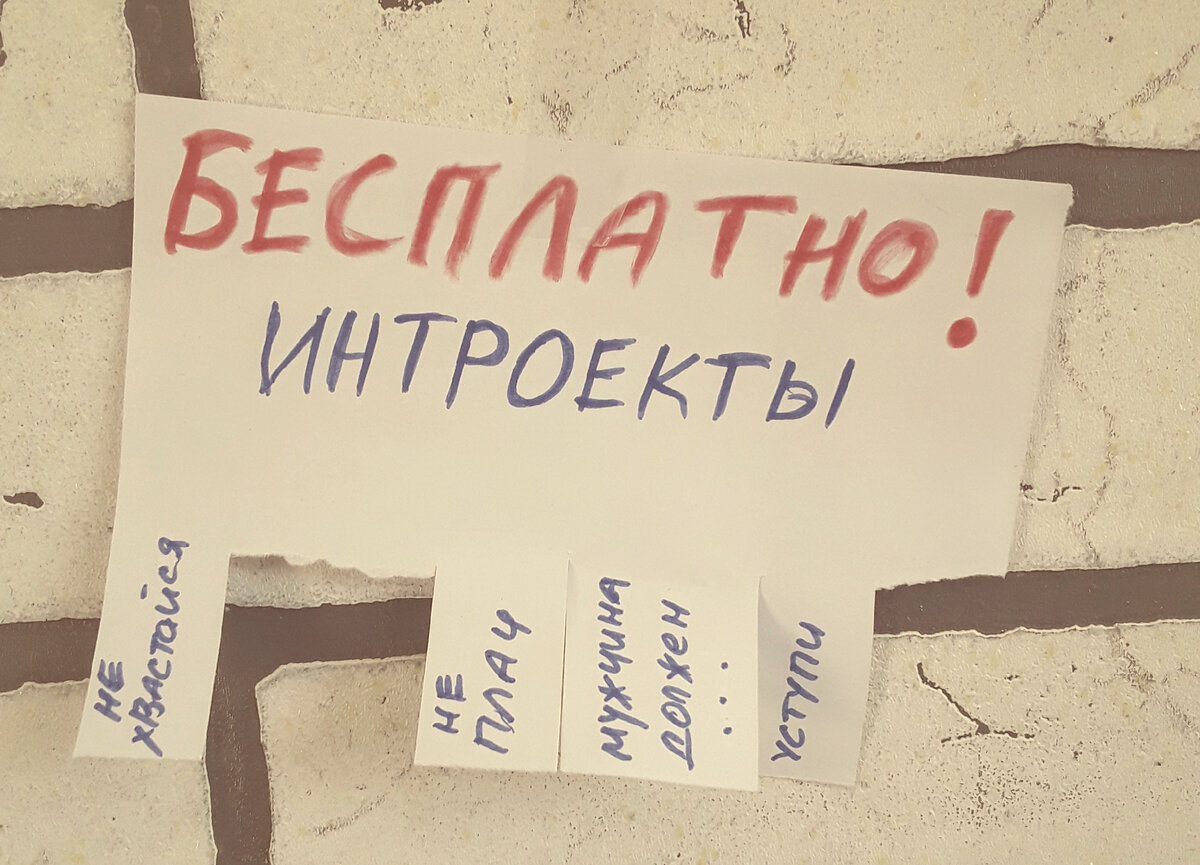 БЕСПЛАТНО!
ИНТРОЕКТЫ
НЕ
хВАСТАЙСЯ
НЕ
ПЛАЧ
МУЖЧИНА
ДОЛЖЕН
...
УСТУПИ